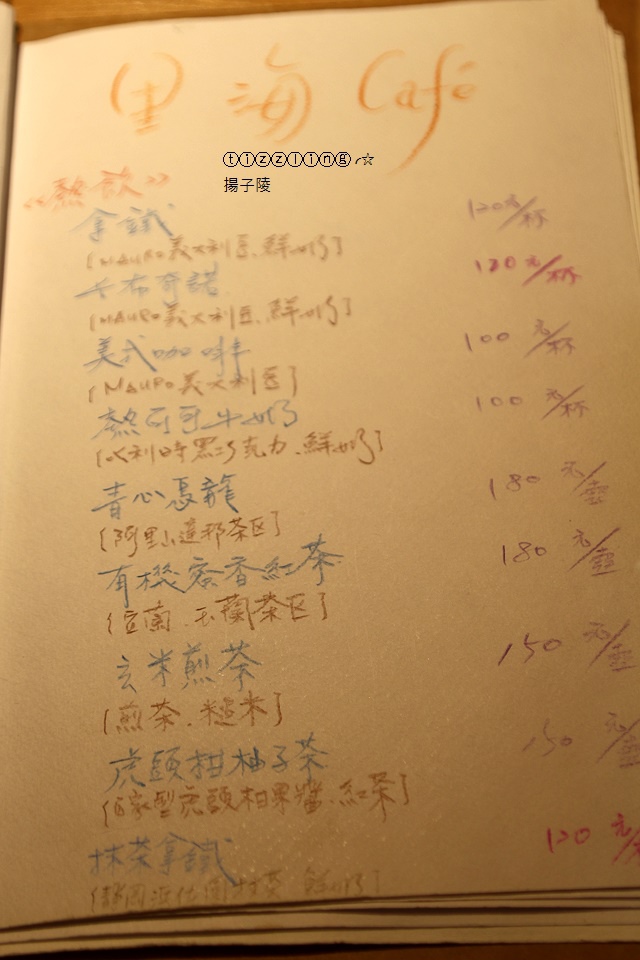 里海 Café
ⓣⓘⓩⓩⓛⓘⓝⓖ ╭☆
揚子陵
《熱飲》
拿鐵 120元/杯
[MAURO義大利豆.鮮奶]
卡布奇諾 120元/杯
[MAURO義大利豆.鮮奶]
美式咖啡 100元/杯
[MAURO義大利豆]
熱可可牛奶 100元/杯
[比利時黑巧克力.鮮奶]
青心烏龍 180元/壺
[阿里山達邦茶区]
有機蜜香紅茶 180元/壺
[宜蘭.玉蘭茶区]
玄米煎茶 150元/壺
[煎茶.糙米]
虎頭柑柚子茶 150元/壺
[自家製虎頭柑果醬.紅茶]
抹茶拿鐵 120元/
[靜岡 鮮奶]